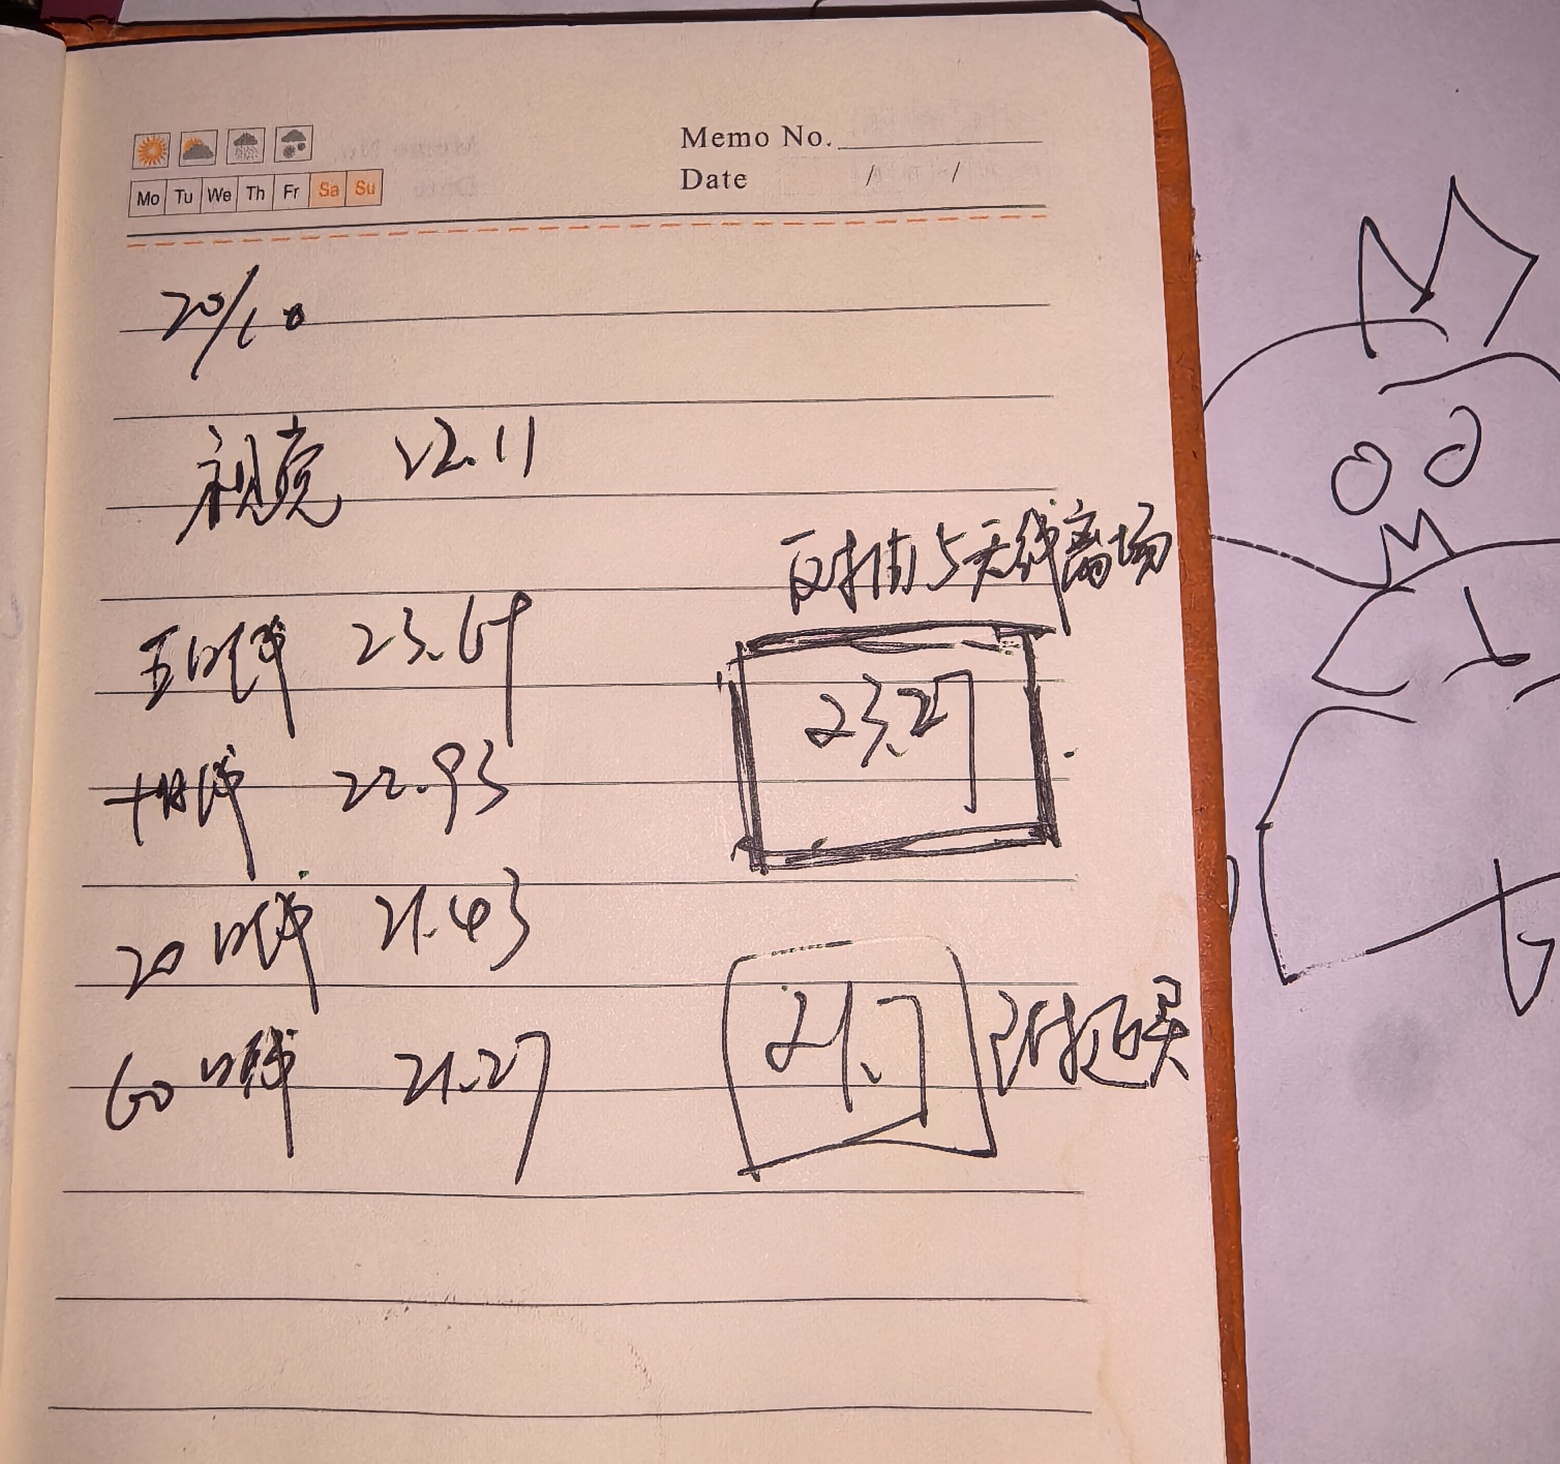 Memo No.
Mo Tu We Th Fr Sa Su
Date / /
20/10
视觉 22.11
反抽5天线离场
五日线 23.69
23.27
十日线 22.93
20日线 21.43
21.7 附近买
60日线 21.27